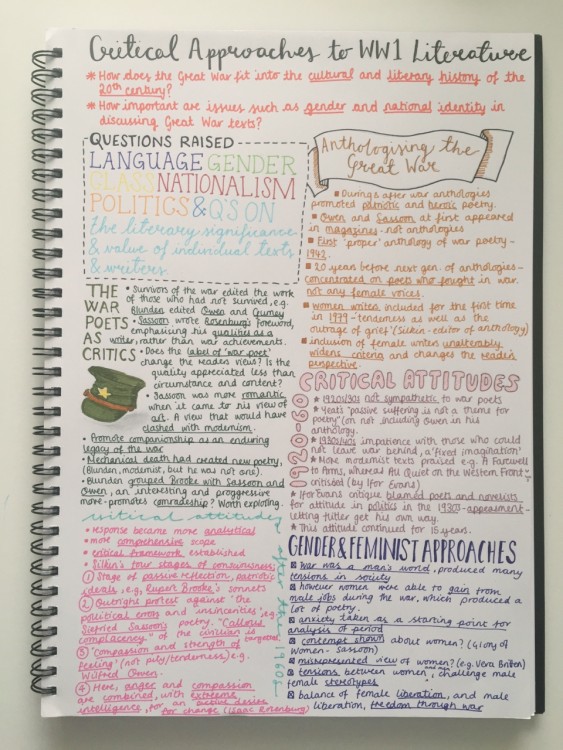 Critical Approaches to WW1 Literature
* How does the Great War fit into the cultural and literary history of the
20th century?
* How important are issues such as gender and national identity in
discussing Great War texts?
QUESTIONS RAISED
LANGUAGE GENDER
CLASS NATIONALISM
POLITICS & Q'S ON
the literary significance
& value of individual texts
& writers.
THE WAR POETS AS CRITICS
• Survivors of the war edited the work
of those who had not survived, e.g.
Blunden edited Owen and Gurney
• Sassoon wrote Rosenburg's foreword,
emphasising his qualities as a
writer, rather than war achievements.
• Does the label of 'war poet'
change the readers views? Is the
quality appreciated less than
circumstance and content?
• Sassoon was more romantic
when it came to his view of
art. A view that would have
clashed with modernism.
• Promote companionship as an enduring
legacy of the war
• Mechanical death had created new poetry,
(Blunden, modernist, but he was not one).
• Blunden grouped Brooke with Sassoon and
Owen, an interesting and proggressive
move - promotes comradeship? Worth exploring.
critical attitudes after the 1960s
• response became more analytical
• more comprehensive scope
• critical framework established
• Silkin's four stages of consciousness;
① Stage of passive reflection, patriotic
ideals, e.g, Rupert Brooke's sonnets
② Outright protest against 'the
political errors and insincerities', e.g.
Siefried Sassoon's poetry. "Callous
complacency" of the civilian is targeted.
③ 'Compassion, and strength of
feeling' (not pity/tenderness) e.g.
Wilfred Owen.
④ Here, anger and compassion
are combined, with extreme
intelligence, for an active desire
for change (Isaac Rosenburg)
Anthologising the
Great War
▪ During & after war anthologies
promoted patriotic and heroic poetry.
▪ Owen and Sassoon at first appeared
in magazines - not anthologies
▪ First 'proper' anthology of war poetry -
1942.
▪ 20 years before next gen. of anthologies -
concentrated on poets who fought in war.
not any female voices.
▪ women writers included for the first time
in 1979 - tenderness as well as the
outrage of grief' (Silkin - editor of anthology)
▪ inclusion of female writers unalterably
widens criteria and changes the readers
perspective.
CRITICAL ATTITUDES
1920-60
★ 1920s/30s not sympathetic to war poets
★ Yeats "passive suffering is not a theme for
poetry" (on not including Owen in his
anthology.
★ 1930s/40s impatience with those who could
not leave war behind, a 'fixed imagination'
★ More modernist texts praised e.g. A Farewell
to Arms, whereas All Quiet on the Western Front
critisised (by Ifor Evans)
★ Ifor Evans critique blamed poets and novelists
for attitude in politics in the 1930s - appeasement -
letting Hitler get his own way.
★ This attitude continued for 15 years.
GENDER & FEMINIST APPROACHES
war was a man's world, produced many
tensions in society
however women were able to gain from
male jobs during the war, which produced a
lot of poetry.
anxiety taken as a starting point for
analysis of period
contempt shown about women? (Glory of
Women - Sassoon)
misrepresented view of women? (e.g. Vera Britten)
tensions between women, challenge male and
female stereotypes
balance of female liberation, and male
liberation, freedom through war